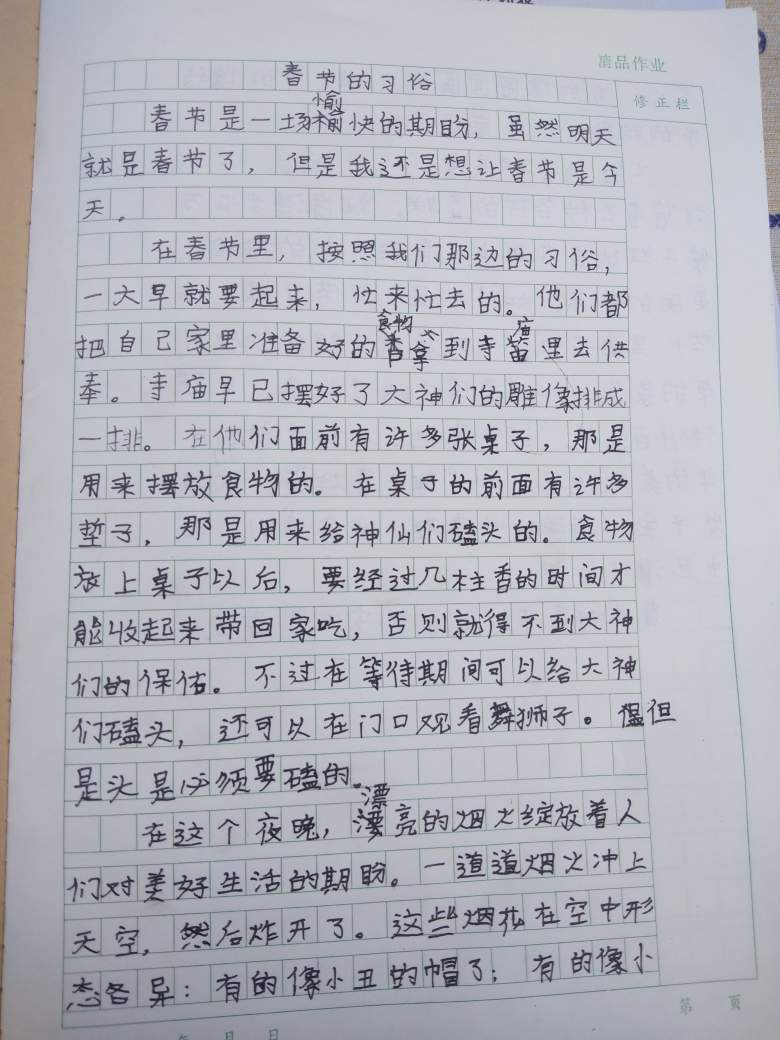 清品作业
修正栏
春节的习俗
春节是一场愉快的期盼，虽然明天
就是春节了，但是我还是想让春节是今
天。
在春节里，按照我们那边的习俗，
一大早就要起来，忙来忙去的。他们都
把自己家里准备好的食物拿到寺庙里去供
奉。寺庙早已摆好了大神们的雕像排成
一排。在他们面前有许多张桌子，那是
用来摆放食物的。在桌子的前面有许多
垫子，那是用来给神仙们磕头的。食物
放上桌子以后，要经过几柱香的时间才
能收起来带回家吃，否则就得不到大神
们的保佑。不过在等待期间可以给大神
们磕头，还可以在门口观看舞狮子。但
是头是必须要磕的。
在这个夜晚，漂亮的烟火绽放着人
们对美好生活的期盼。一道道烟火冲上
天空，然后炸开了。这些烟花在空中形
态各异：有的像小丑的帽了；有的像小
第 页
年 月 日